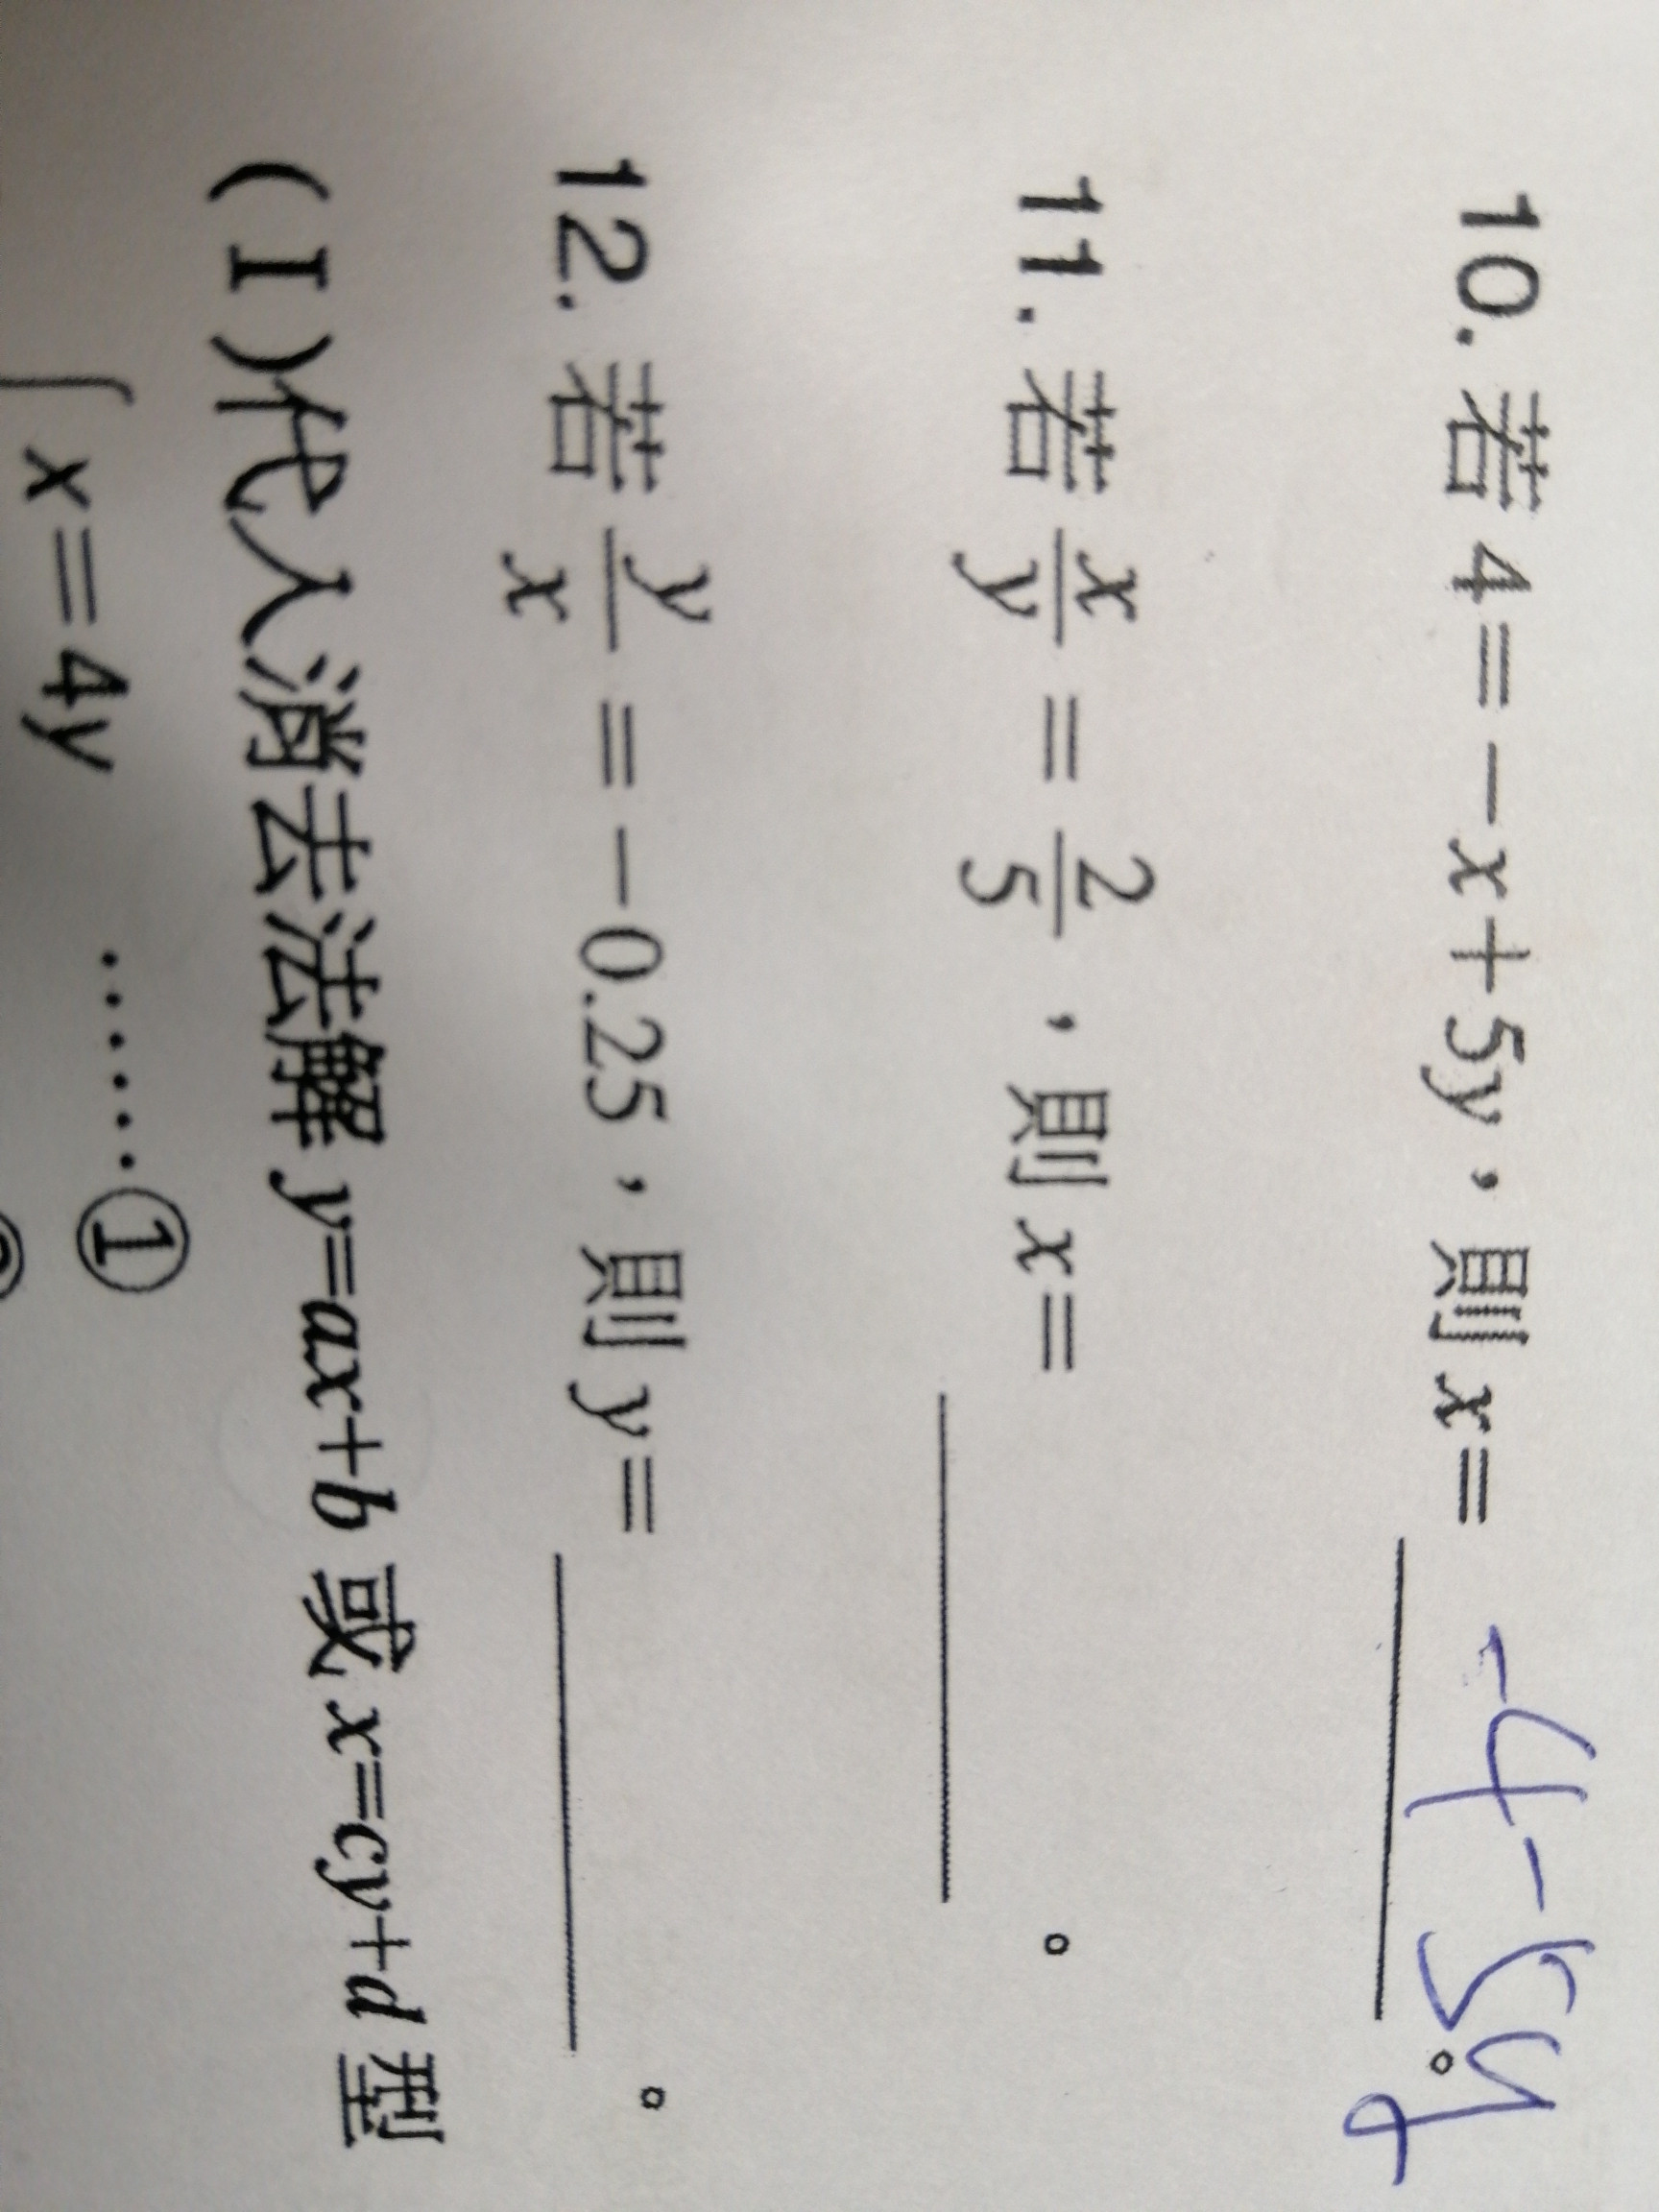 10. 若 4=-x+5y,則 x= -4-5y 。
11. 若 x/y = 2/5,則 x= ______ 。
12. 若 y/x = -0.25,則 y= ______ 。
( I )代入消去法解 y=ax+b 或 x=cy+d 型
x=4y ……①